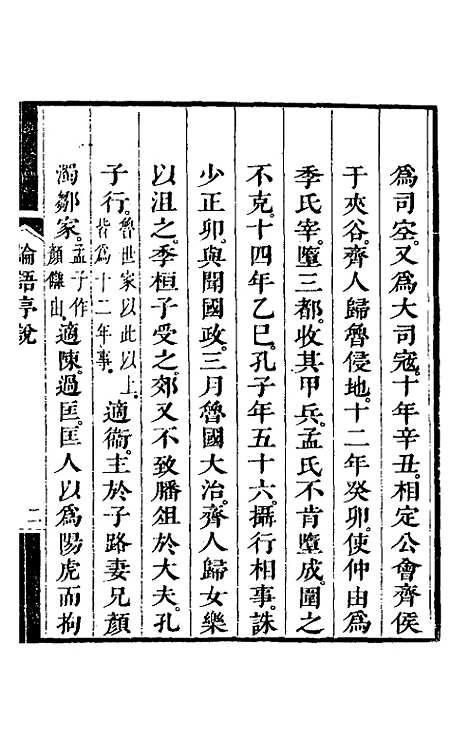 爲司空。又爲大司寇。十年辛丑。相定公會齊侯
于夾谷。齊人歸魯侵地。十二年癸卯。使仲由爲
季氏宰。墮三都。收其甲兵。孟氏不肯墮成。圍之
不克。十四年乙巳。孔子年五十六。攝行相事。誅
少正卯。與聞國政。三月魯國大治。齊人歸女樂
以沮之。季桓子受之。郊又不致膰俎於大夫。孔
子行。魯世家以此以上皆爲十二年事。適衞。主於子路妻兄顏
濁鄒家。孟子作顏讎由。適陳。過匡。匡人以爲陽虎而拘
論語序說
二